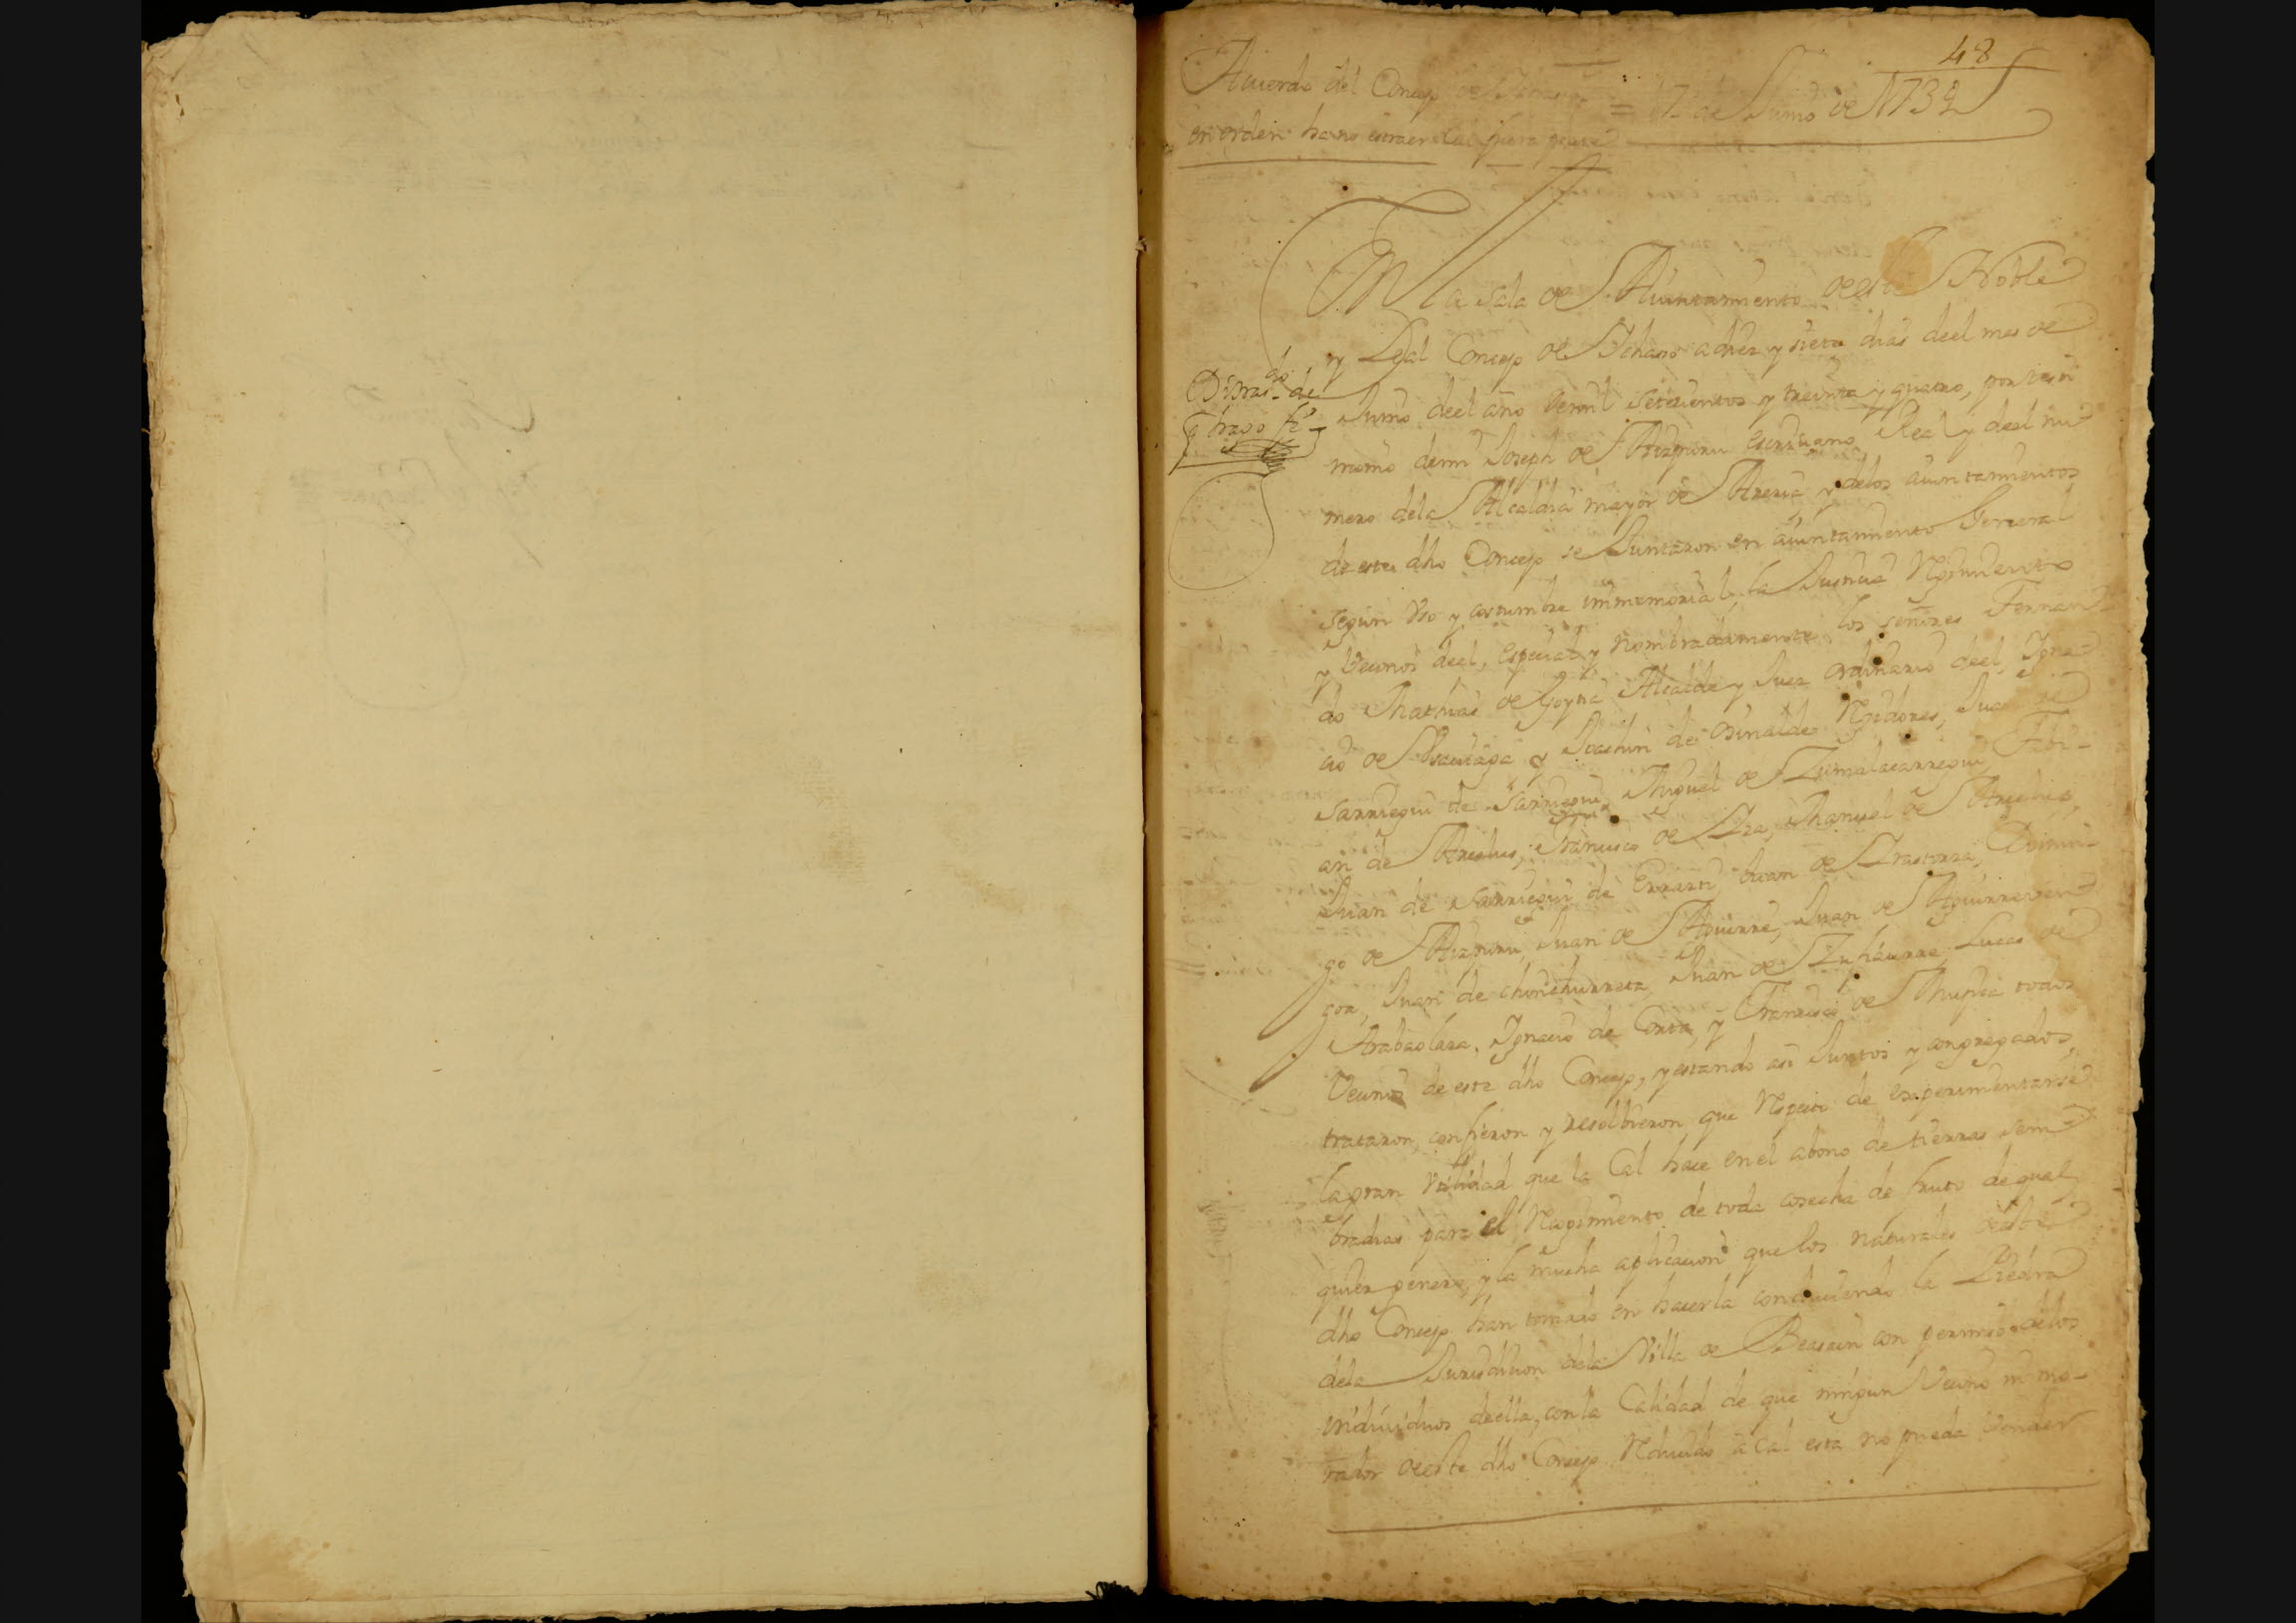 48
Acuerdo del Concejo de = 17 de Junio de 1734
en orden hano extraer cal fuera
En la Sala de Aiuntamiento de este Noble
y Leal Concejo de Ichaso a diez y siete dias deel mes de
Junio deel año de mil setecientos y treinta y quatro, por testi
monio demi Joseph de Aizpuru escriuano Real y deel nu
mero dela Alcaldia mayor de Areria, y delos aiuntamientos
de este dho Concejo se Juntaron en aiuntamiento General
segun Vso y costumbre immemorial, la Justicia Regimiento
y Vecinos deel, especial y nombradamente los señores Fernan
do Mathias de Goytia Alcalde y Juez ordinario deel, Igna
cio de y Joachin de Regidores, Juan de
Sarriegui de Sarriegui, Miguel de Zumalacarregui, Fabi-
an de Arechua, Francisco de Lza, Manuel de Arechua,
Juan de Sarriegui de Errasti, Juan de Lrastorza, Domin-
go de Aizpuru, Juan de Aguirre, Juan de Aguirreven
goa, Juan de chorichurreta, Juan de Zuhaurre, Lucas de
Arabaolaza, Ignacio de Corta, y Francisco de Mugica todos
Vecinos de este dho Concejo, y estando asi Juntos y congregados,
trataron, confieron y resolbieron que Respecto de experimentarse
la gran Vtilidad que la Cal hace en el abono de tierras sem
bradias para el Recogimiento de toda cosecha de fruto de qual
quier genero, y la mucha aplicacion que los naturales deeste
dho Concejo han tomado en hacerla conduciendo la Piedra
dela Jurisdicion dela Villa de Beasain con permiso delos
individuos deella, con la Calidad de que ningun Vecino ni mo-
rador deeste dho Concejo Reducido a Cal esta no pueda vender